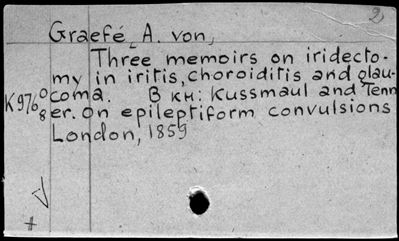 2
Graefé, A. von,
Three memoirs on iridecto-
my in iritis, choroiditis and glau-
coma. В кн: Kussmaul and Tenn
er. On epileptiform convulsions
London, 1859
K 976
8